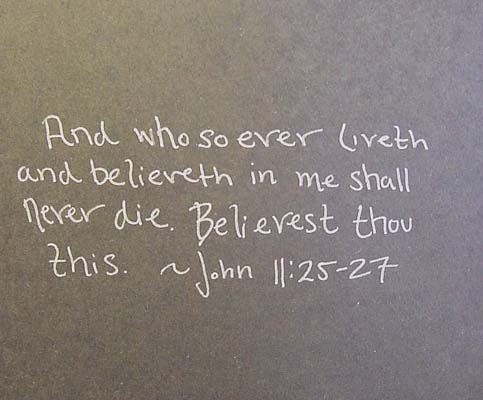 And whosoever liveth
and believeth in me shall
never die. Believest thou
this. ~ John 11:25-27